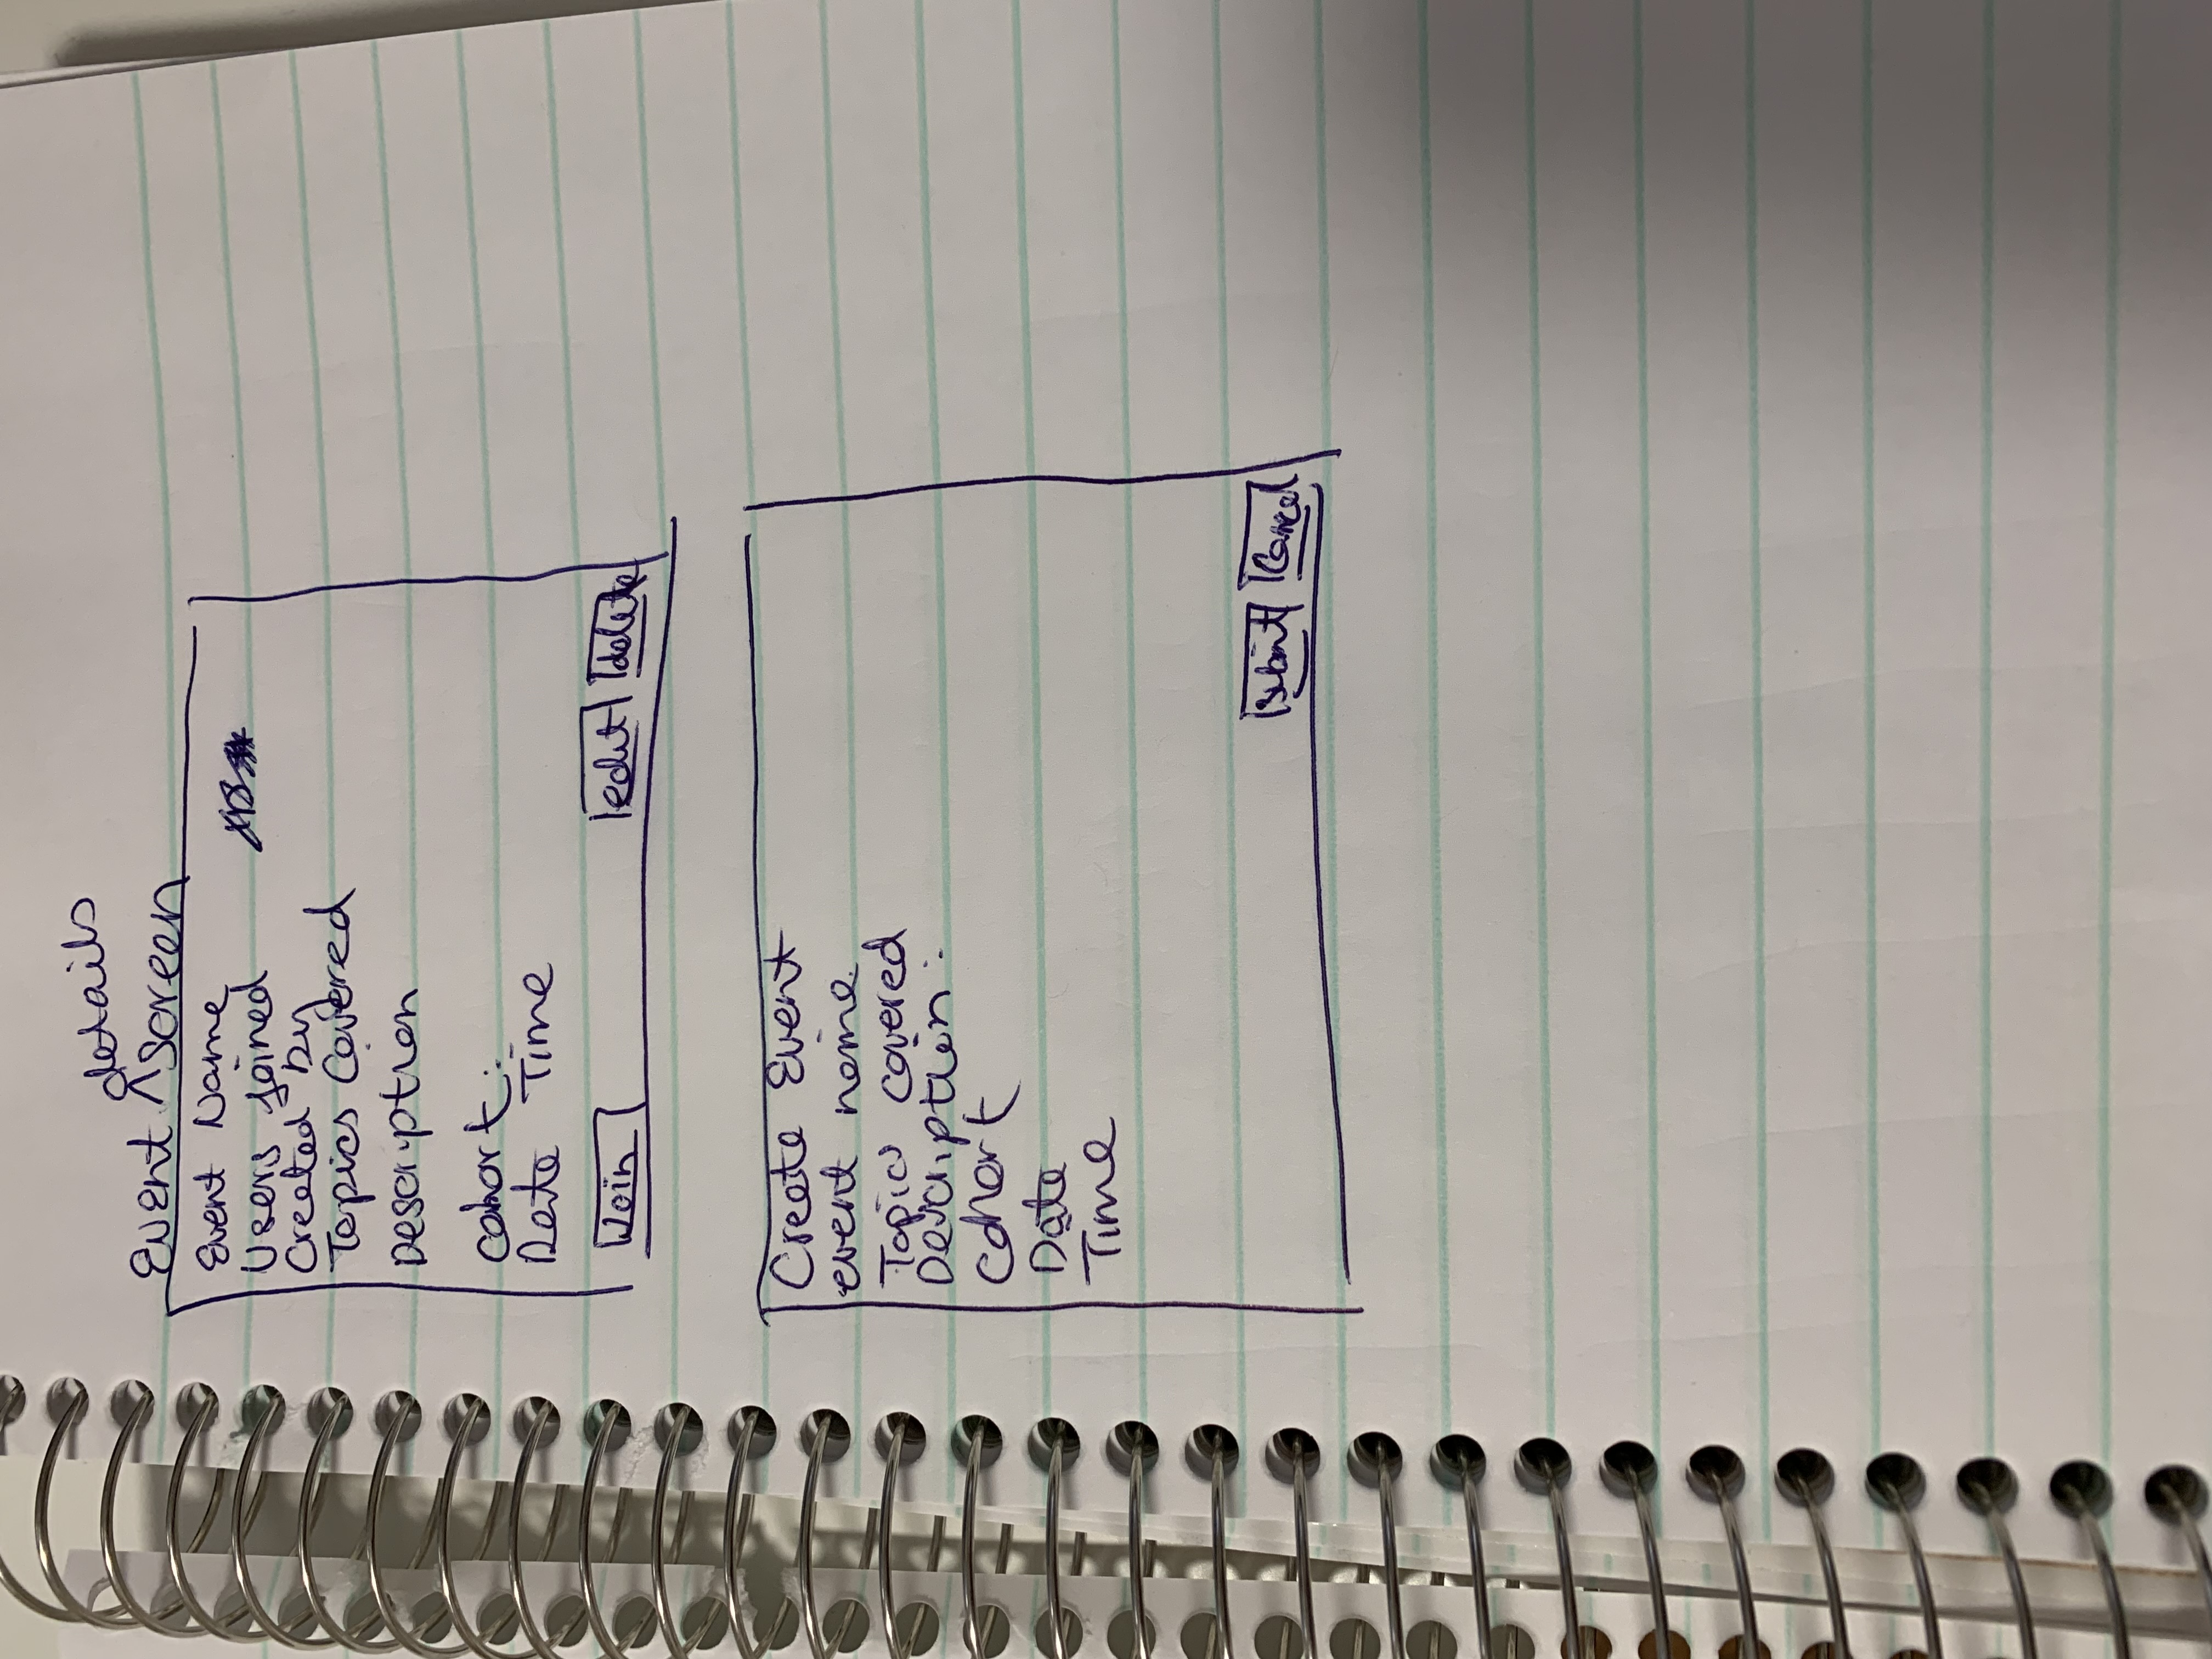 Event details screen
Event Name
Users joined
Created by
Topics Covered
Description
cohort:
Date Time
Join edit delete
Create Event
event name
Topics covered
Description:
cohort
Date
Time
Submit Cancel